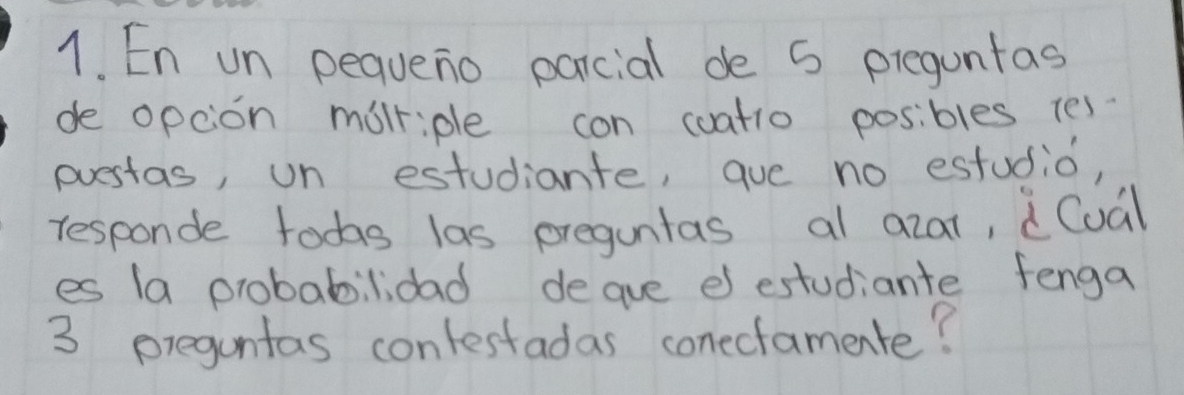 1. En un pequeño parcial de 5 preguntas
de opción múltiple con cuatro posibles res-
puestas, un estudiante, que no estudió,
responde todas las preguntas al azar, ¿Cuál
es la probabilidad de que el estudiante tenga
3 preguntas contestadas correctamente?